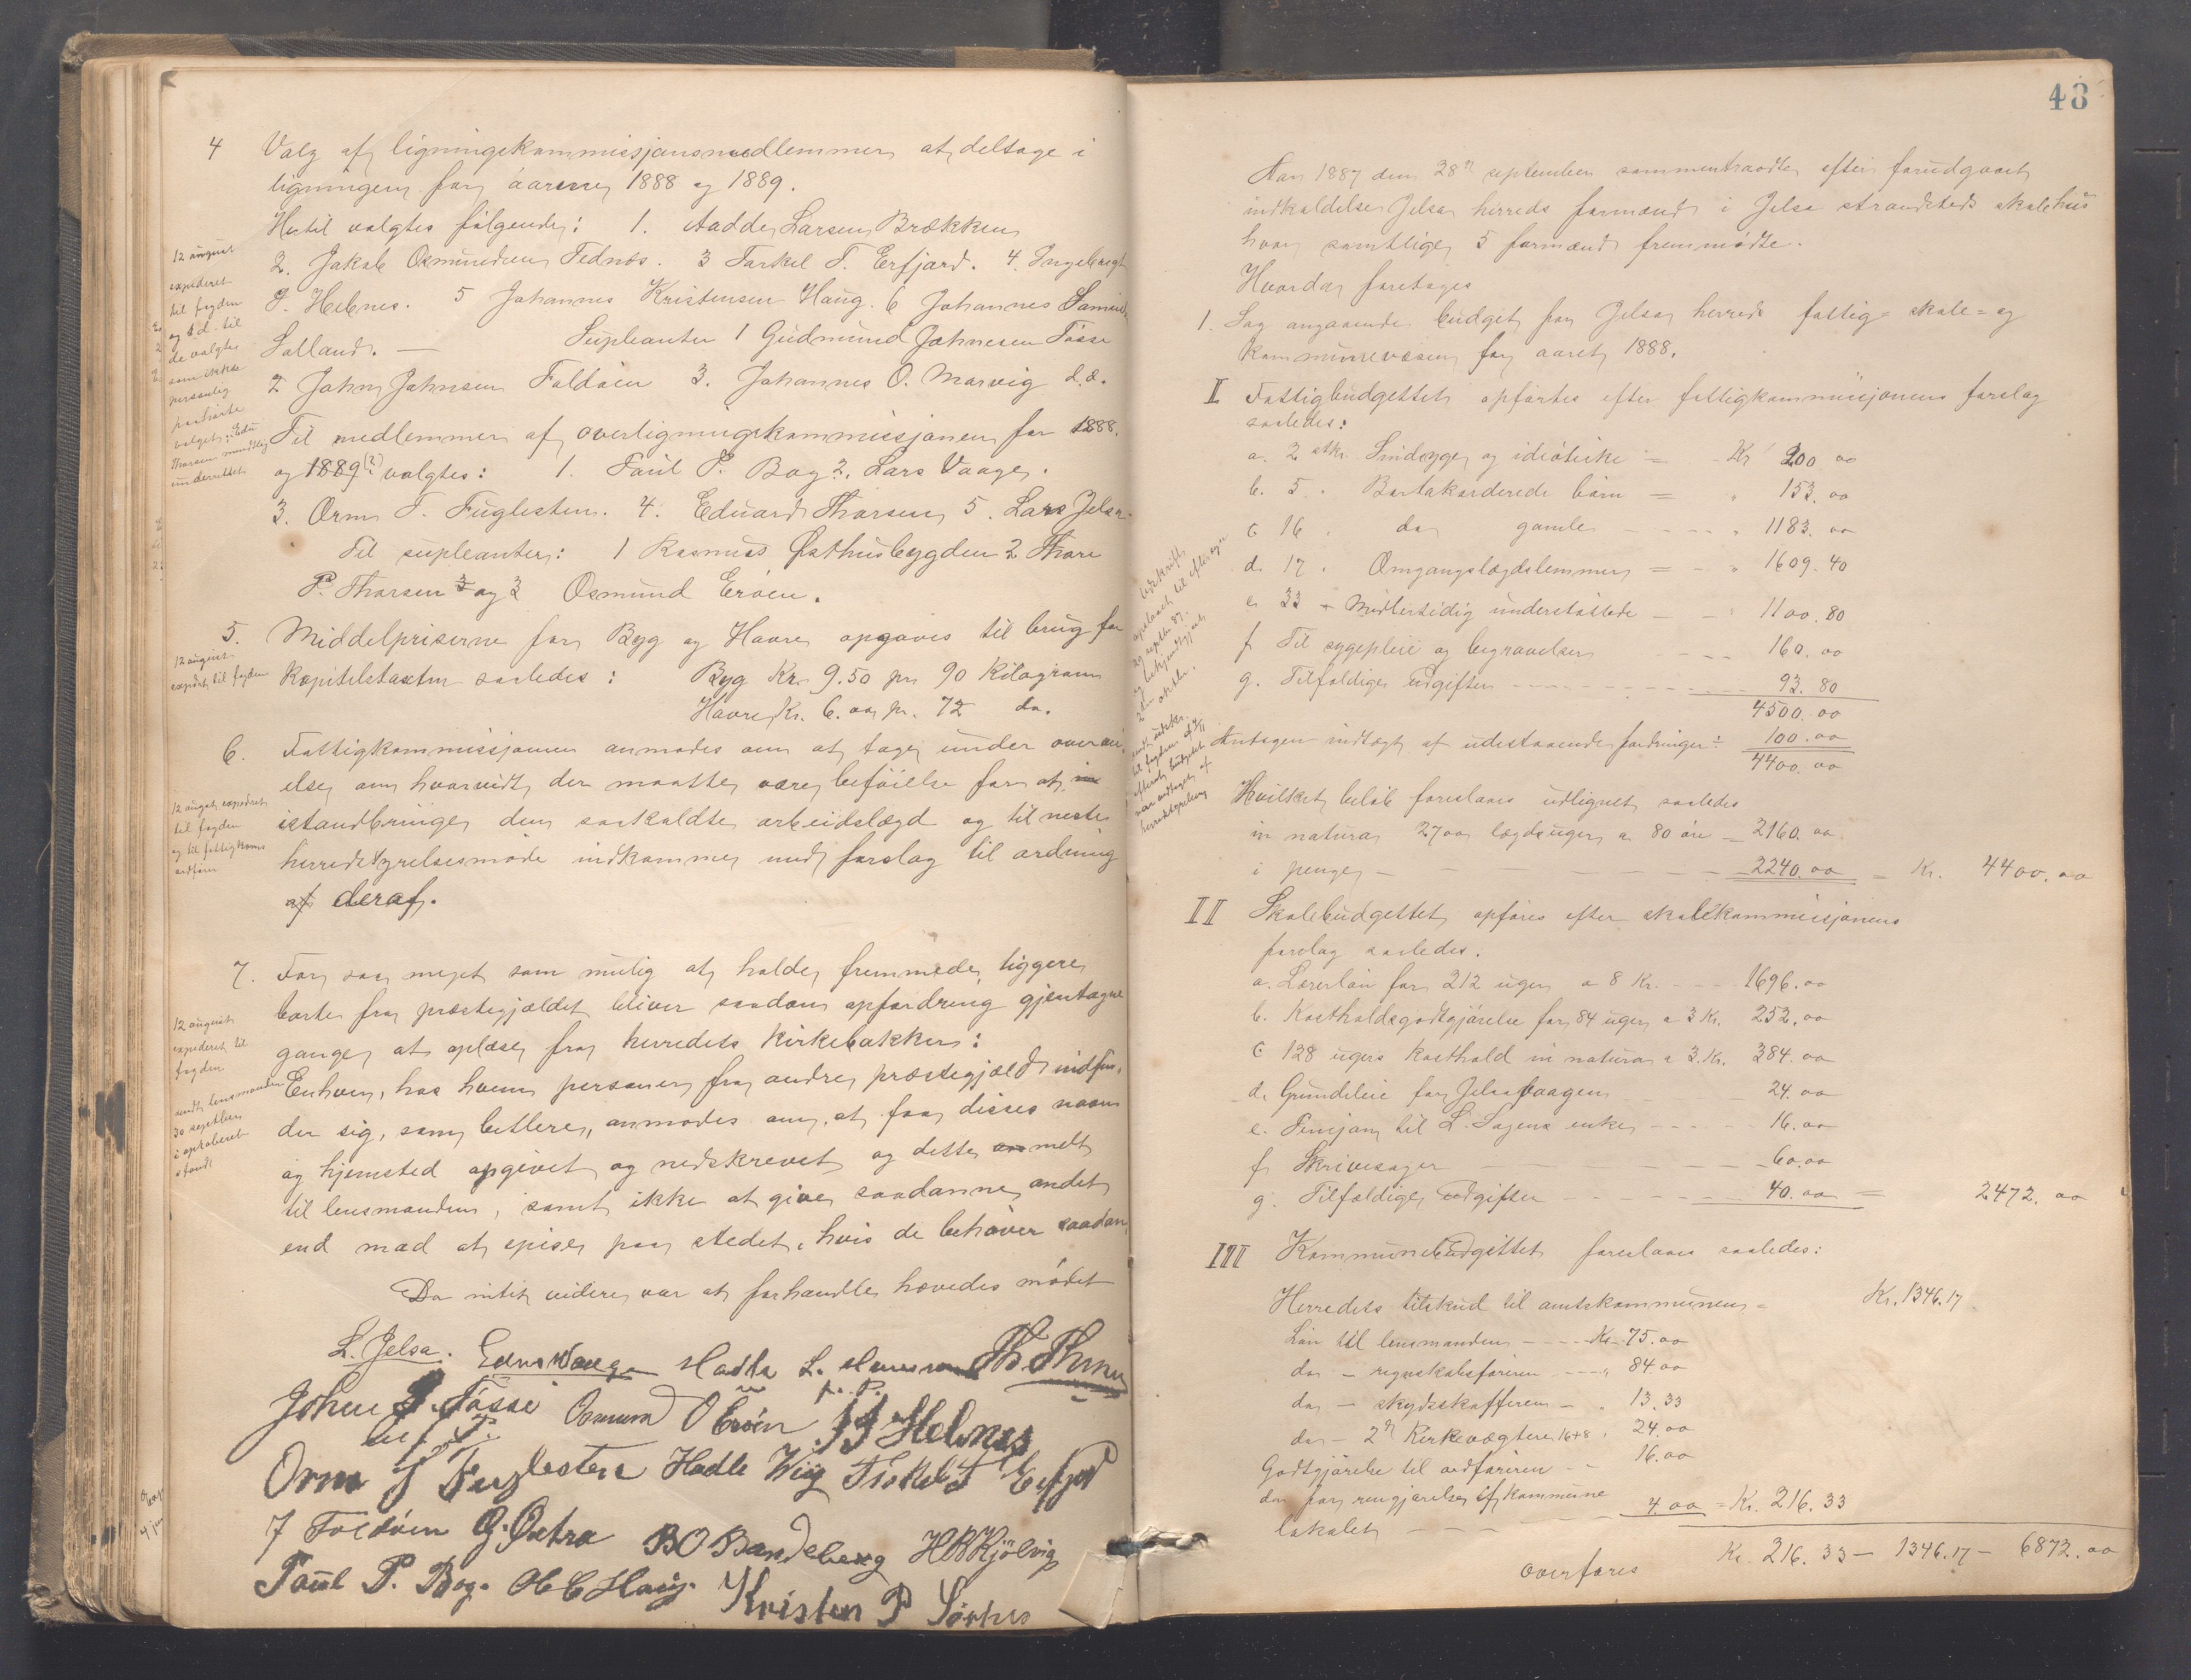 4 Valg af ligningskommissjonsmedlemmer at deltage i
ligningen for aarene 1888 og 1889.
Hertil valgtes følgende: 1. Aadde Larsen Brækken
2. Jakob Osmundsen Tednæs. 3 Torkel T. Erfjord. 4. Ingebregt
J. Hebnes. 5 Johannes Kristensen Haug. 6 Johannes
Salland. — Supleanter 1 Gudmund Johnesen Fosse
2 John Johnsen Foldøen 3. Johannes O. Marvig d.æ.
Til medlemmer af overligningskommissjonen for 1888
og 1889 valgtes: 1. Poul P. Bog 2. Lars Vaage.
3. Orm T. Fuglesten. 4. Eduard Thorsen 5. Lars Jelsa.
Til supleanter: 1 Rasmus Østhusbygden 2 Thore
P. Thorsen og 3 Osmund Erøen.
12 august
expederet
til fogden
og til
de valgte
som ikke
personlig
paahørte
valget
Thorsen mundtlig
underrettet
5. Middelpriserne for Byg og Havre opgaves til brug for
Kapitelstaxten saaledes: Byg Kr. 9.50 pr. 90 Kilogram
Havre Kr. 6.oo pr. 72 do.
12 august
expedert til fogden
6. Fattigkommissjonen anmodes om at tage under overvei-
else om hvorvidt der maatte være beføielse for at
istandbringe den saakaldte arbeidslægd og til neste
herredstyrelsesmøde indkomme med forslag til ordning
af deraf.
12 august expederet
til fogden
og til fattigkoms
ordfører
7. For saa meget som mulig at holde fremmede tiggere
borte fra præstegjældet bliver saadan opfordring gjentagne
gange at oplæse fra herredets Kirkebakker:
Enhver, hos hvem personer fra andre præstegjæld indfin-
der sig, som betlere, anmodes om at faa disses navn
og hjemsted opgivet og nedskrevet og dette melt
til lensmanden, samt ikke at give saadanne andet
end mad at spise paa stedet, hvis de behøver saadan
12 august
expederet til
fogden
sendt lensmanden
30 septbr
i opløberet
stand
Da intet videre var at forhandle hævedes mødet
L. Jelsa. Lars Waage Hadle L. Th. Thorsen
John J. Fosse Osmund O Erøen J J Hebnes
Orm T Fuglesten Hadle Wiig Torkel T Erfjord
J Foldøen G. Østrø B O Bandeberg H R Kjølvig
Poul P. Bog. Ole C Haug. Kristen P Sørhus
48
Aar 1887 den 28de september sammentraadte efter forudgaaet
indkaldelse Jelsa herreds formænd i Jelse strandsteds skolehus
hvor samtlige 5 formænd fremmødte.
Hvorda foretoges
1. Sag angaaende budget for Jelsa herreds fattig= skole= og
kommunevæsen for aaret 1888.
I Fattigbudgettet opførtes efter fattigkommissjonens forslag
saaledes:
a. 2 stkr. Sindsyge og idioter = Kr 200 oo
b. 5 " Bortakorderede børn = " 153. oo
c 16 " do gamle - - - " 1183. oo
d. 17 " Omgangslægdslemmer = - " 1609.40
e 33 " Midlertidig understøttede - - " 1100.80
f Til sygepleie og begravelser - - - 160. oo
g. Tilfældige udgifter - - - 93. 80
4500. oo
Antagen indtægt af udestaaende fordringer ÷ 100. oo
4400. oo
Hvilket beløb foreslaaes udlignet saaledes
in natura 27oo lægdsuger a 80 øre = 2160. oo
i penge - - - 2240. oo = Kr. 4400. oo
II Skolebudgettet opføres efter skolekommissjonens
forslag saaledes.
a. Lærerløn for 212 uger a 8 Kr. - - - 1696. oo
b. Kostholdsgodtgjørelse for 84 uger a 3 Kr. 252. oo
c 128 ugers kosthold in natura a 3. Kr. 384. oo
d. Grundleie for Jelsavaagen 24. oo
e. Pensjon til L. Sagens enke - - - 16. oo
f Skrivesager - - - 60. oo
g. Tilfældige udgifter - - - 40. oo = 2472. oo
III Kommunebudgettet foreslaaes saaledes:
Herredets tilskud til amtskommunen = Kr. 1346.17
Løn til lensmanden - - - Kr. 75. oo
do - regnskabsføreren - - - " 84 oo
do - skydsskafferen - " 13.33
do - 2de Kirkevægtere 16+8 " 24. oo
Godtgjørelse til ordføreren - - 16. oo
do for rengjørelse af kommune
lokalet - - - 4. oo = Kr. 216.33
overføres Kr. 216. 33 — 1346.17 — 6872. oo